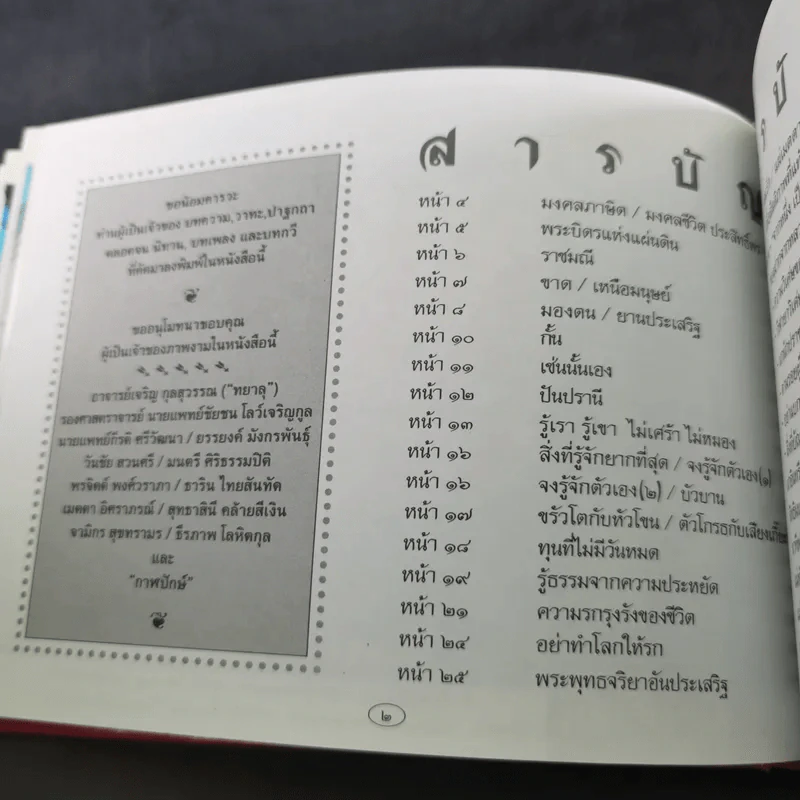 ขอน้อมคารวะ
ท่านผู้เป็นเจ้าของ บทความ, วาทะ, ปาฐกถา
ตลอดจน นิทาน, บทเพลง และบทกวี
ที่คัดมาลงพิมพ์ในหนังสือนี้
ขออนุโมทนาขอบคุณ
ผู้เป็นเจ้าของภาพงามในหนังสือนี้
อาจารย์เจริญ กุลสุวรรณ ("ทยาลุ")
รองศาสตราจารย์ นายแพทย์ชัยชน โลว์เจริญกูล
นายแพทย์กีรติ ศรีวัฒนา / ยรรยงค์ มังกรพันธุ์
วันชัย สวนศรี / มนตรี ศิริธรรมปิติ
พรจิตต์ พงศ์วราภา / ธาริน ไทยสันทัด
เมตตา อิศราภรณ์ / สุทธาสินี คล้ายสีเงิน
จามิกร สุขทรามร / ธีรภาพ โลหิตกุล
และ
"กาฬปักษ์"
สารบัญ
หน้า ๔ มงคลภาษิต / มงคลชีวิต ประสิทธิ์
หน้า ๕ พระบิดรแห่งแผ่นดิน
หน้า ๖ ราชมณี
หน้า ๗ ขาด / เหนือมนุษย์
หน้า ๘ มองตน / ยานประเสริฐ
หน้า ๑๐ กั้น
หน้า ๑๑ เช่นนั้นเอง
หน้า ๑๒ ปันปรานี
หน้า ๑๓ รู้เรา รู้เขา ไม่เศร้า ไม่หมอง
หน้า ๑๖ สิ่งที่รู้จักยากที่สุด / จงรู้จักตัวเอง(๑)
หน้า ๑๖ จงรู้จักตัวเอง(๒) / บัวบาน
หน้า ๑๗ ขรัวโตกับหัวโขน / ตัวโกรธกับเสียง
หน้า ๑๘ ทุนที่ไม่มีวันหมด
หน้า ๑๙ รู้ธรรมจากความประหยัด
หน้า ๒๑ ความรกรุงรังของชีวิต
หน้า ๒๔ อย่าทำโลกให้รก
หน้า ๒๕ พระพุทธจริยาอันประเสริฐ
๒